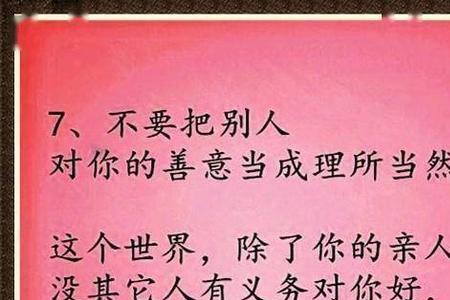 7、不要把别人
对你的善意当成理所当然
这个世界，除了你的亲人
没其它人有义务对你好